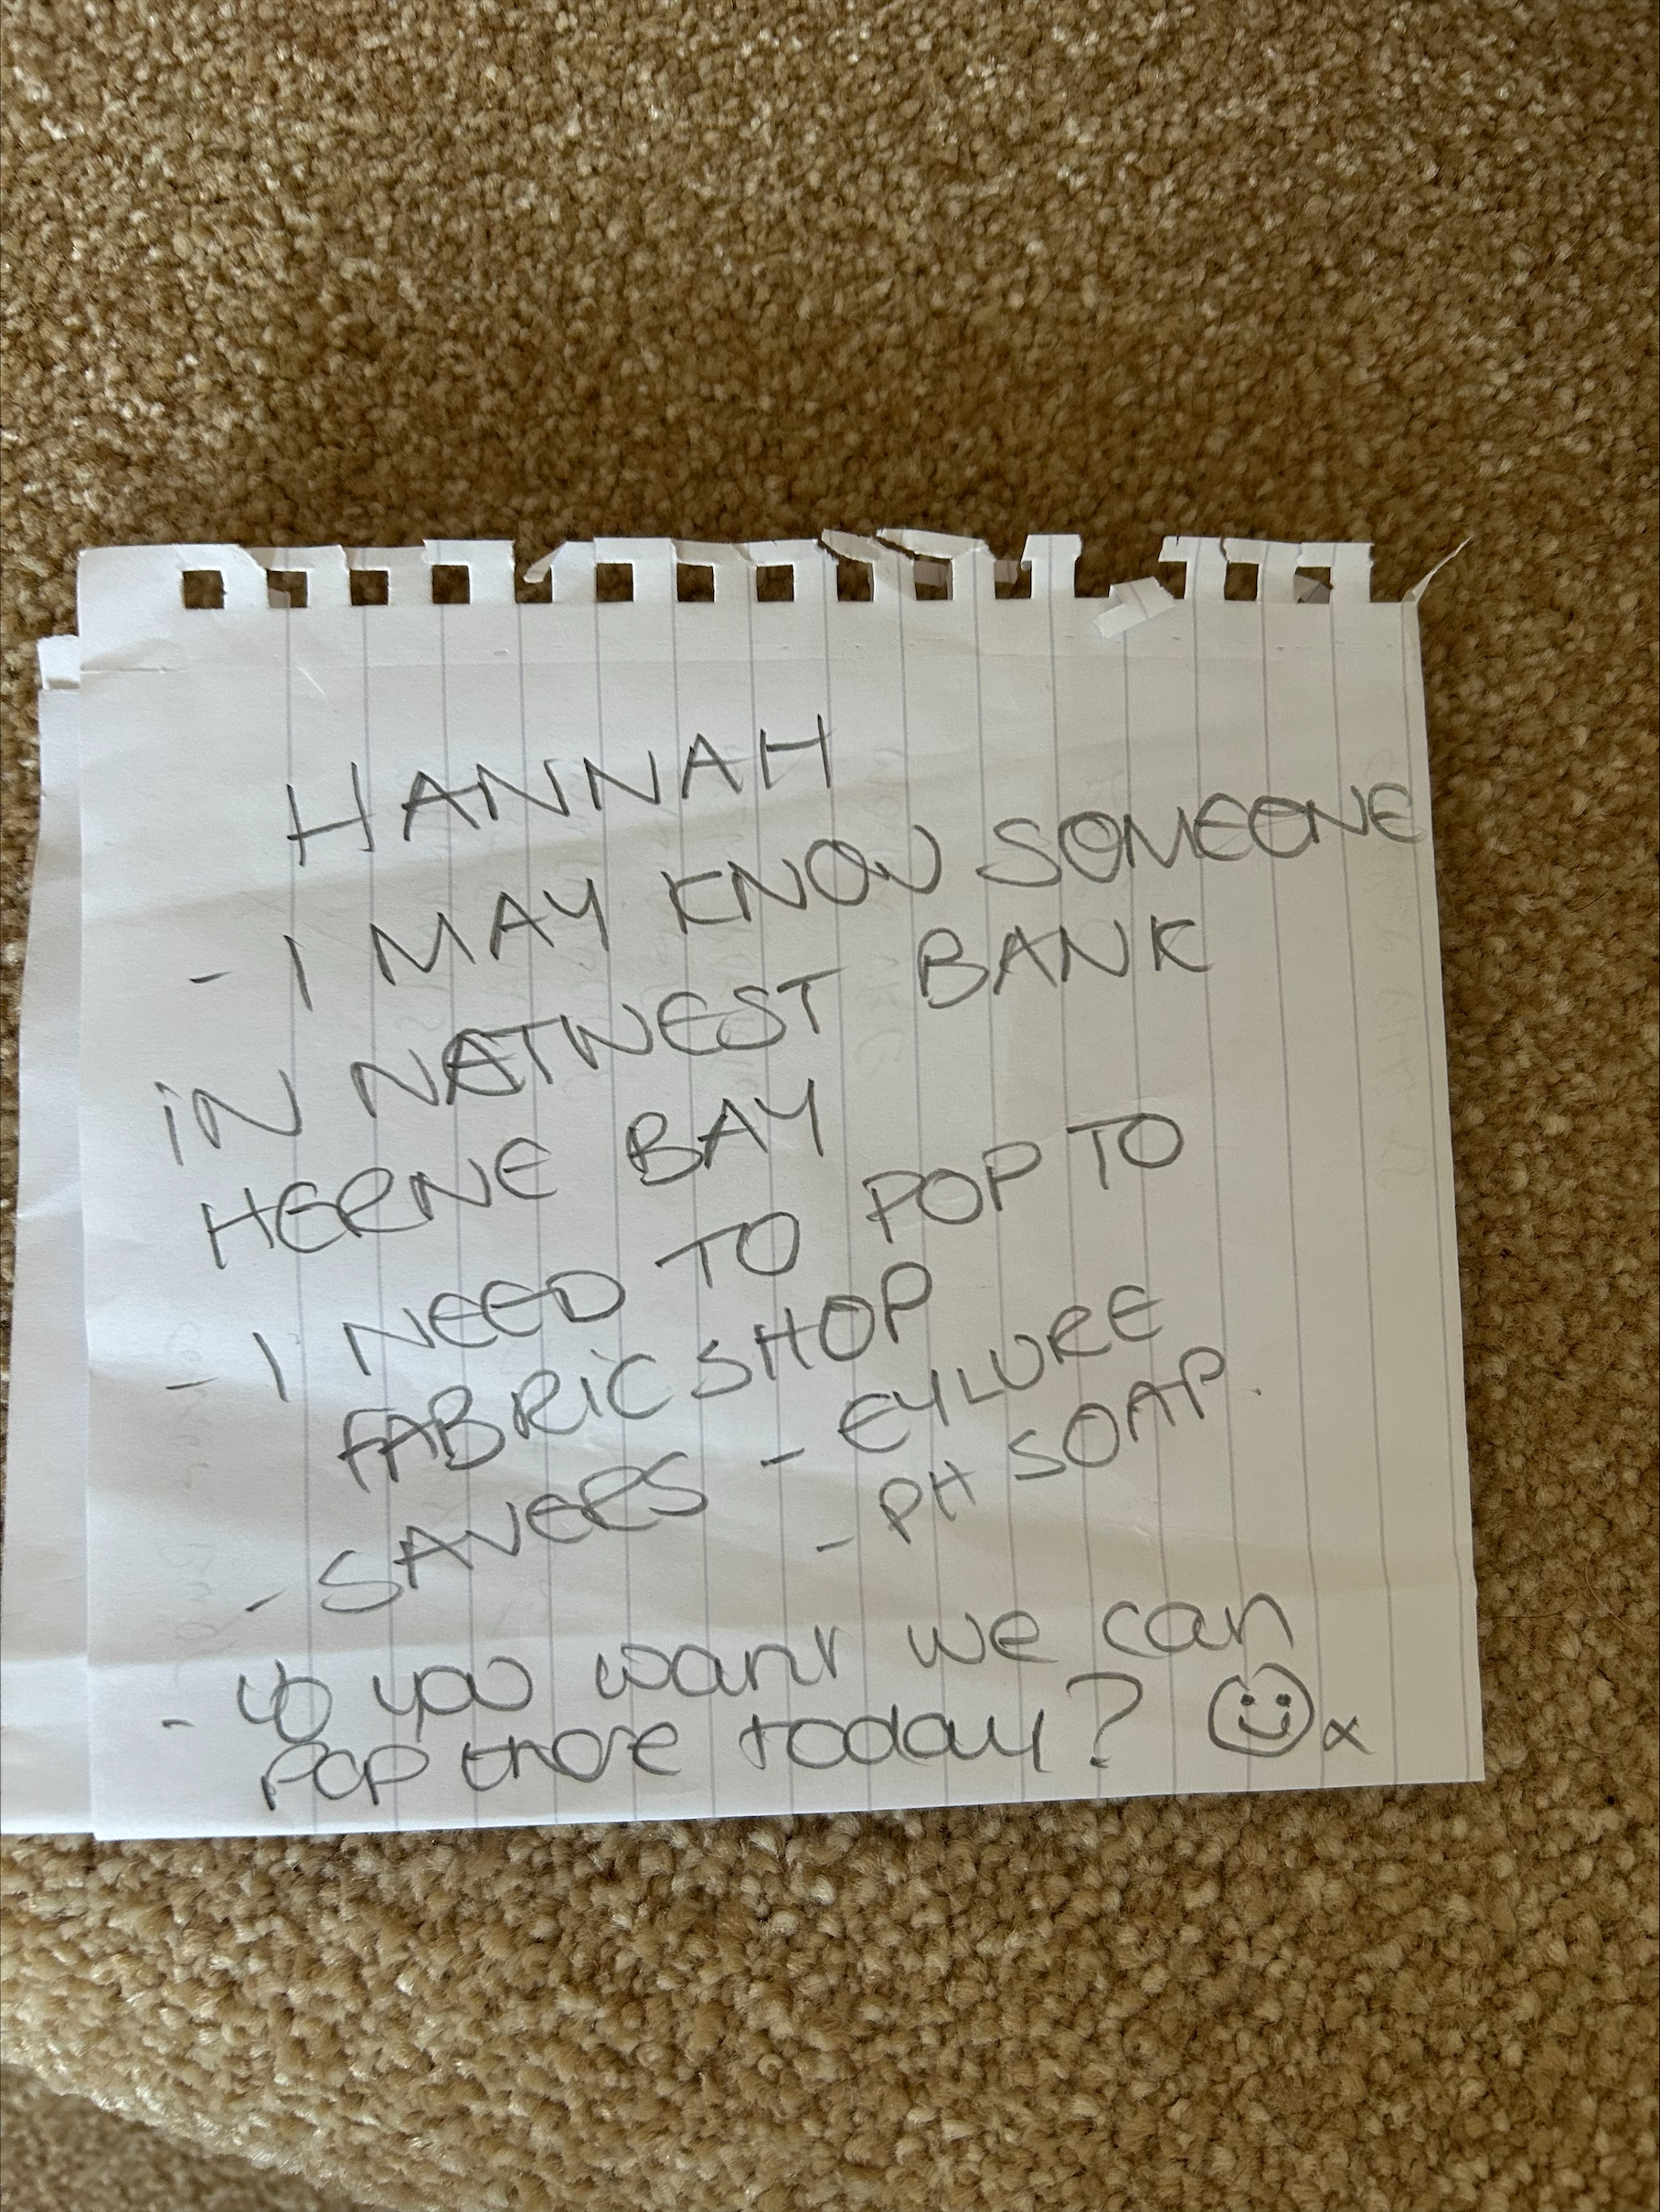 HANNAH
- I MAY KNOW SOMEONE
iN NATWEST BANK
HERNE BAY
- I NEED TO POP TO
FABRiC SHOP
- SAVERS - EYLURE
- PH SOAP.
- you want we can
POP there today? ☺x